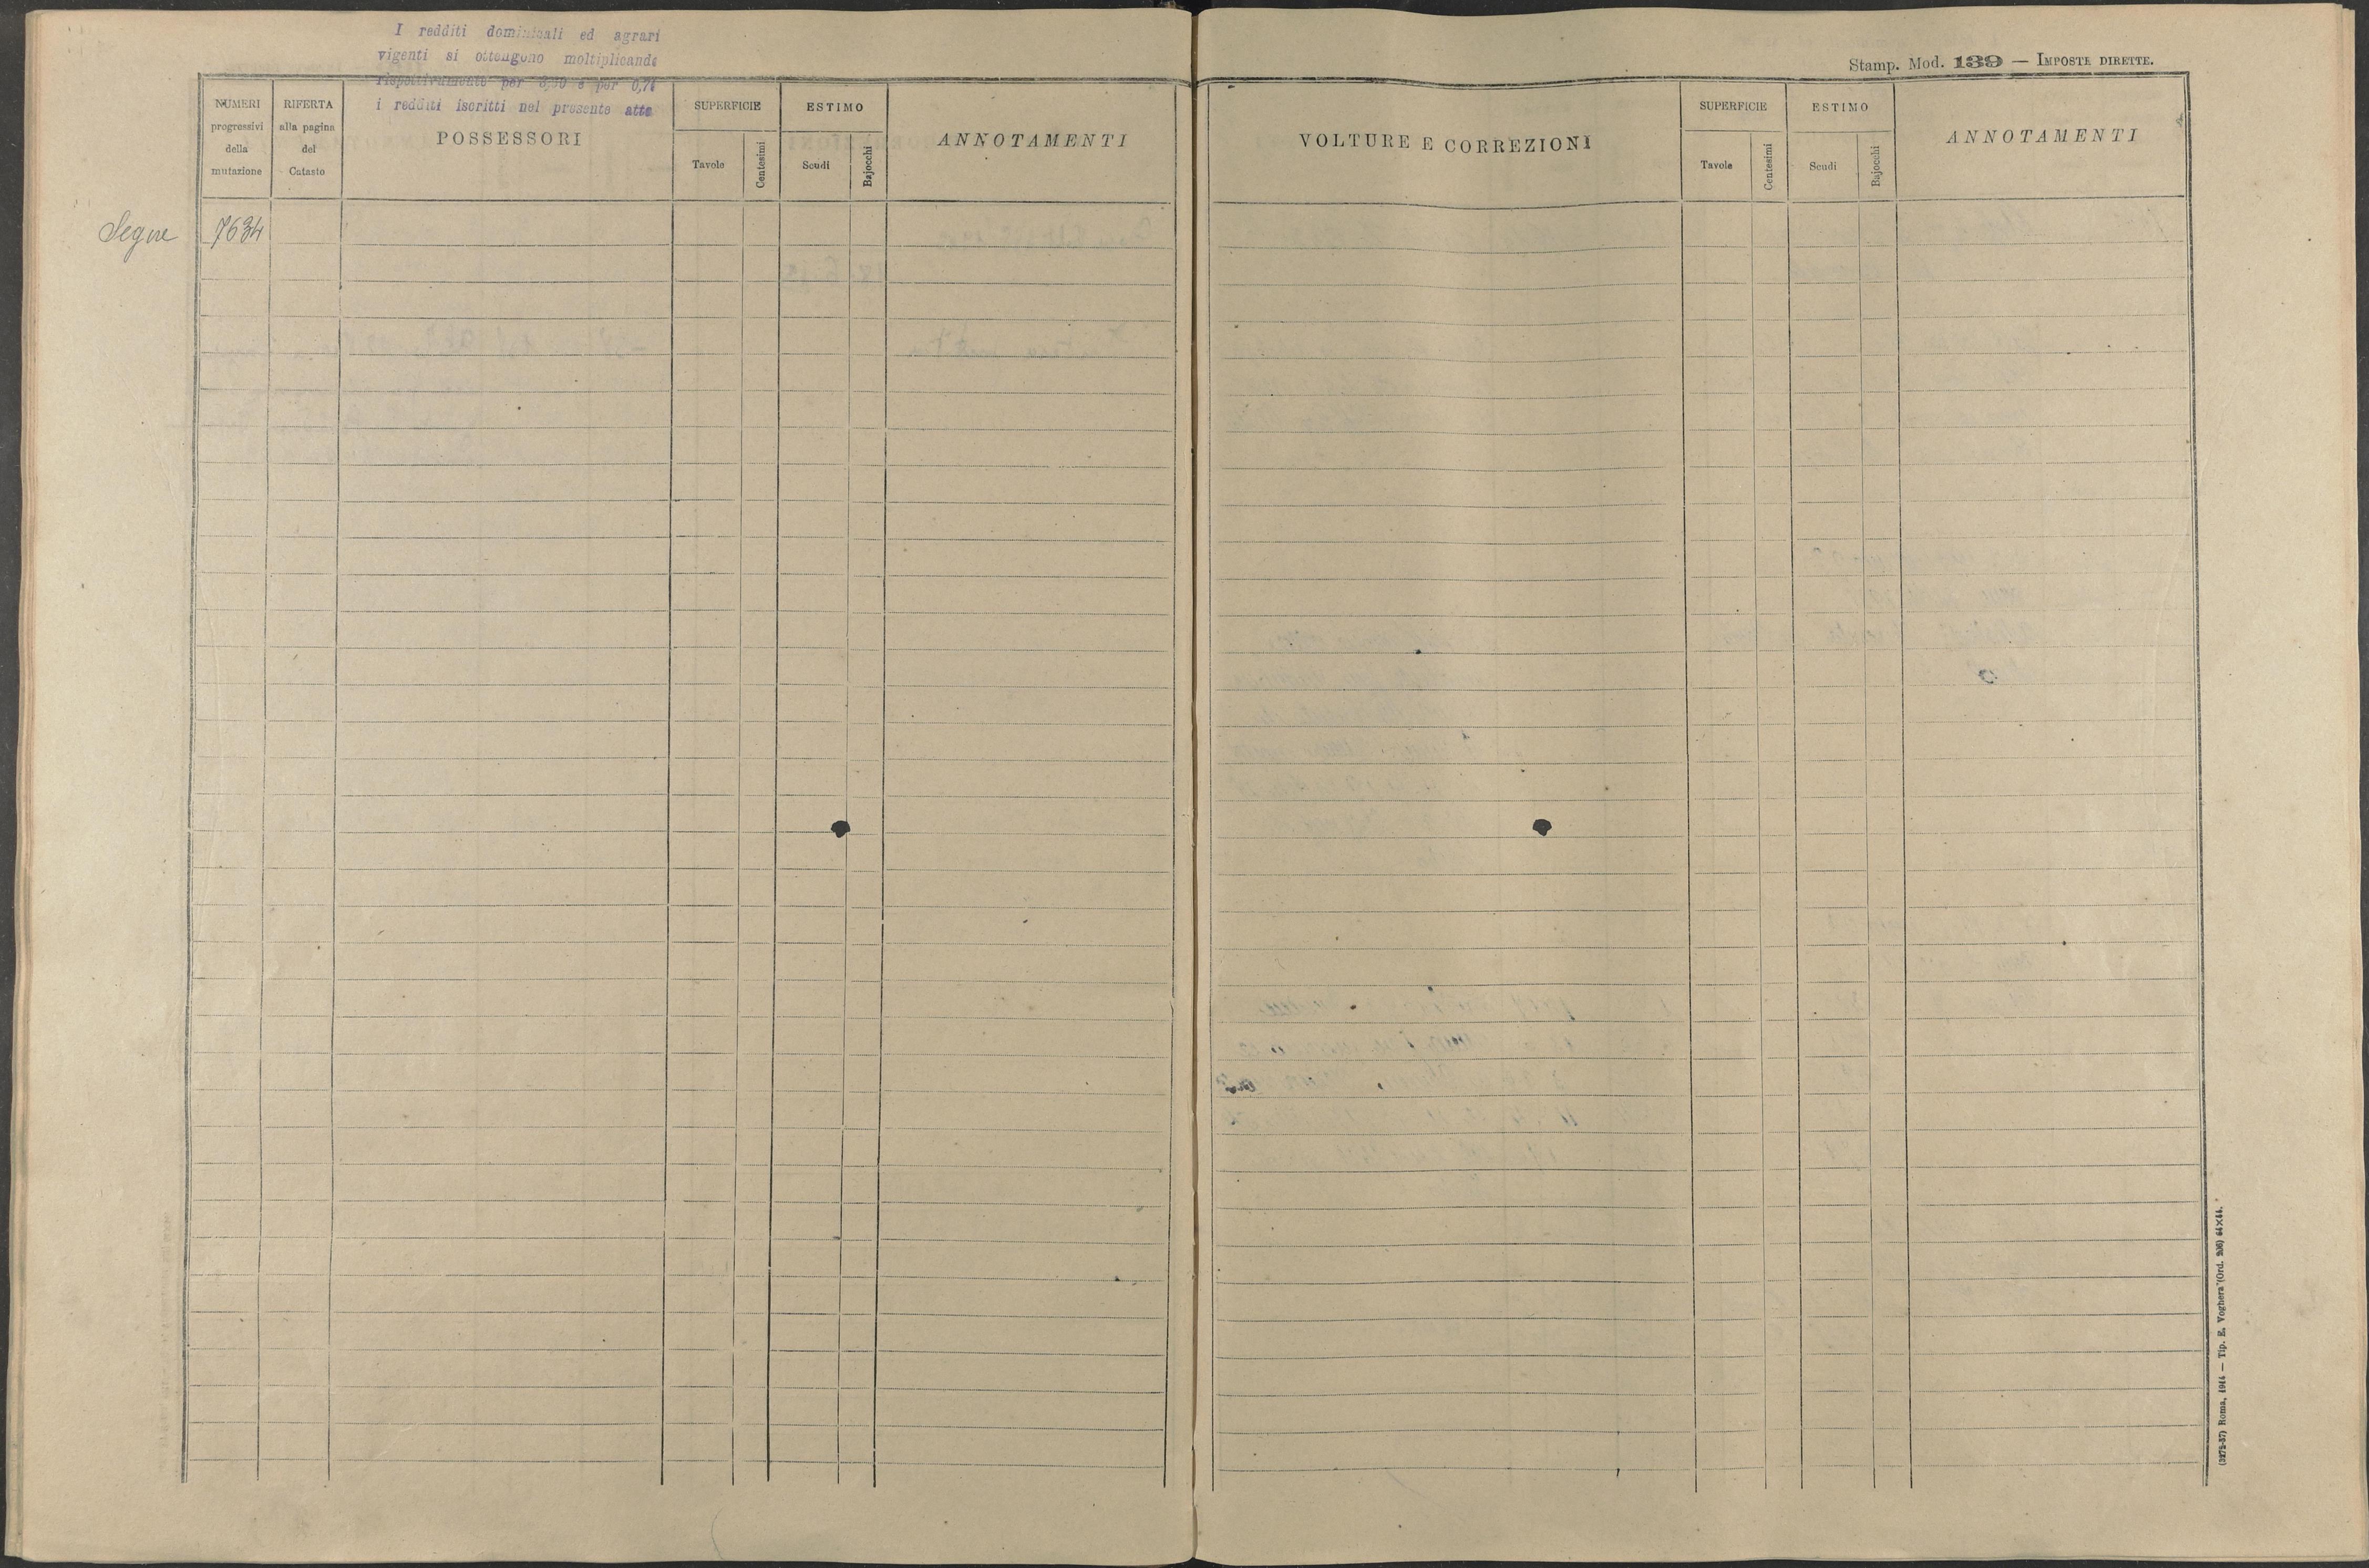 I redditi dominicali ed agrari
vigenti si ottengono moltiplicando
rispettivamente per e per
i redditi iscritti nel presente atto
Stamp. Mod. 139 — IMPOSTE DIRETTE.
NUMERI progressivi della mutazione
RIFERTA alla pagina del Catasto
POSSESSORI
SUPERFICIE
Tavole
Centesimi
ESTIMO
Scudi
Bajocchi
ANNOTAMENTI
VOLTURE E CORREZIONI
SUPERFICIE
Tavole
Centesimi
ESTIMO
Scudi
Bajocchi
ANNOTAMENTI
Segue 7634
Roma, 1914 — Tip. E. Voghera (Ord. 206) 64×44.